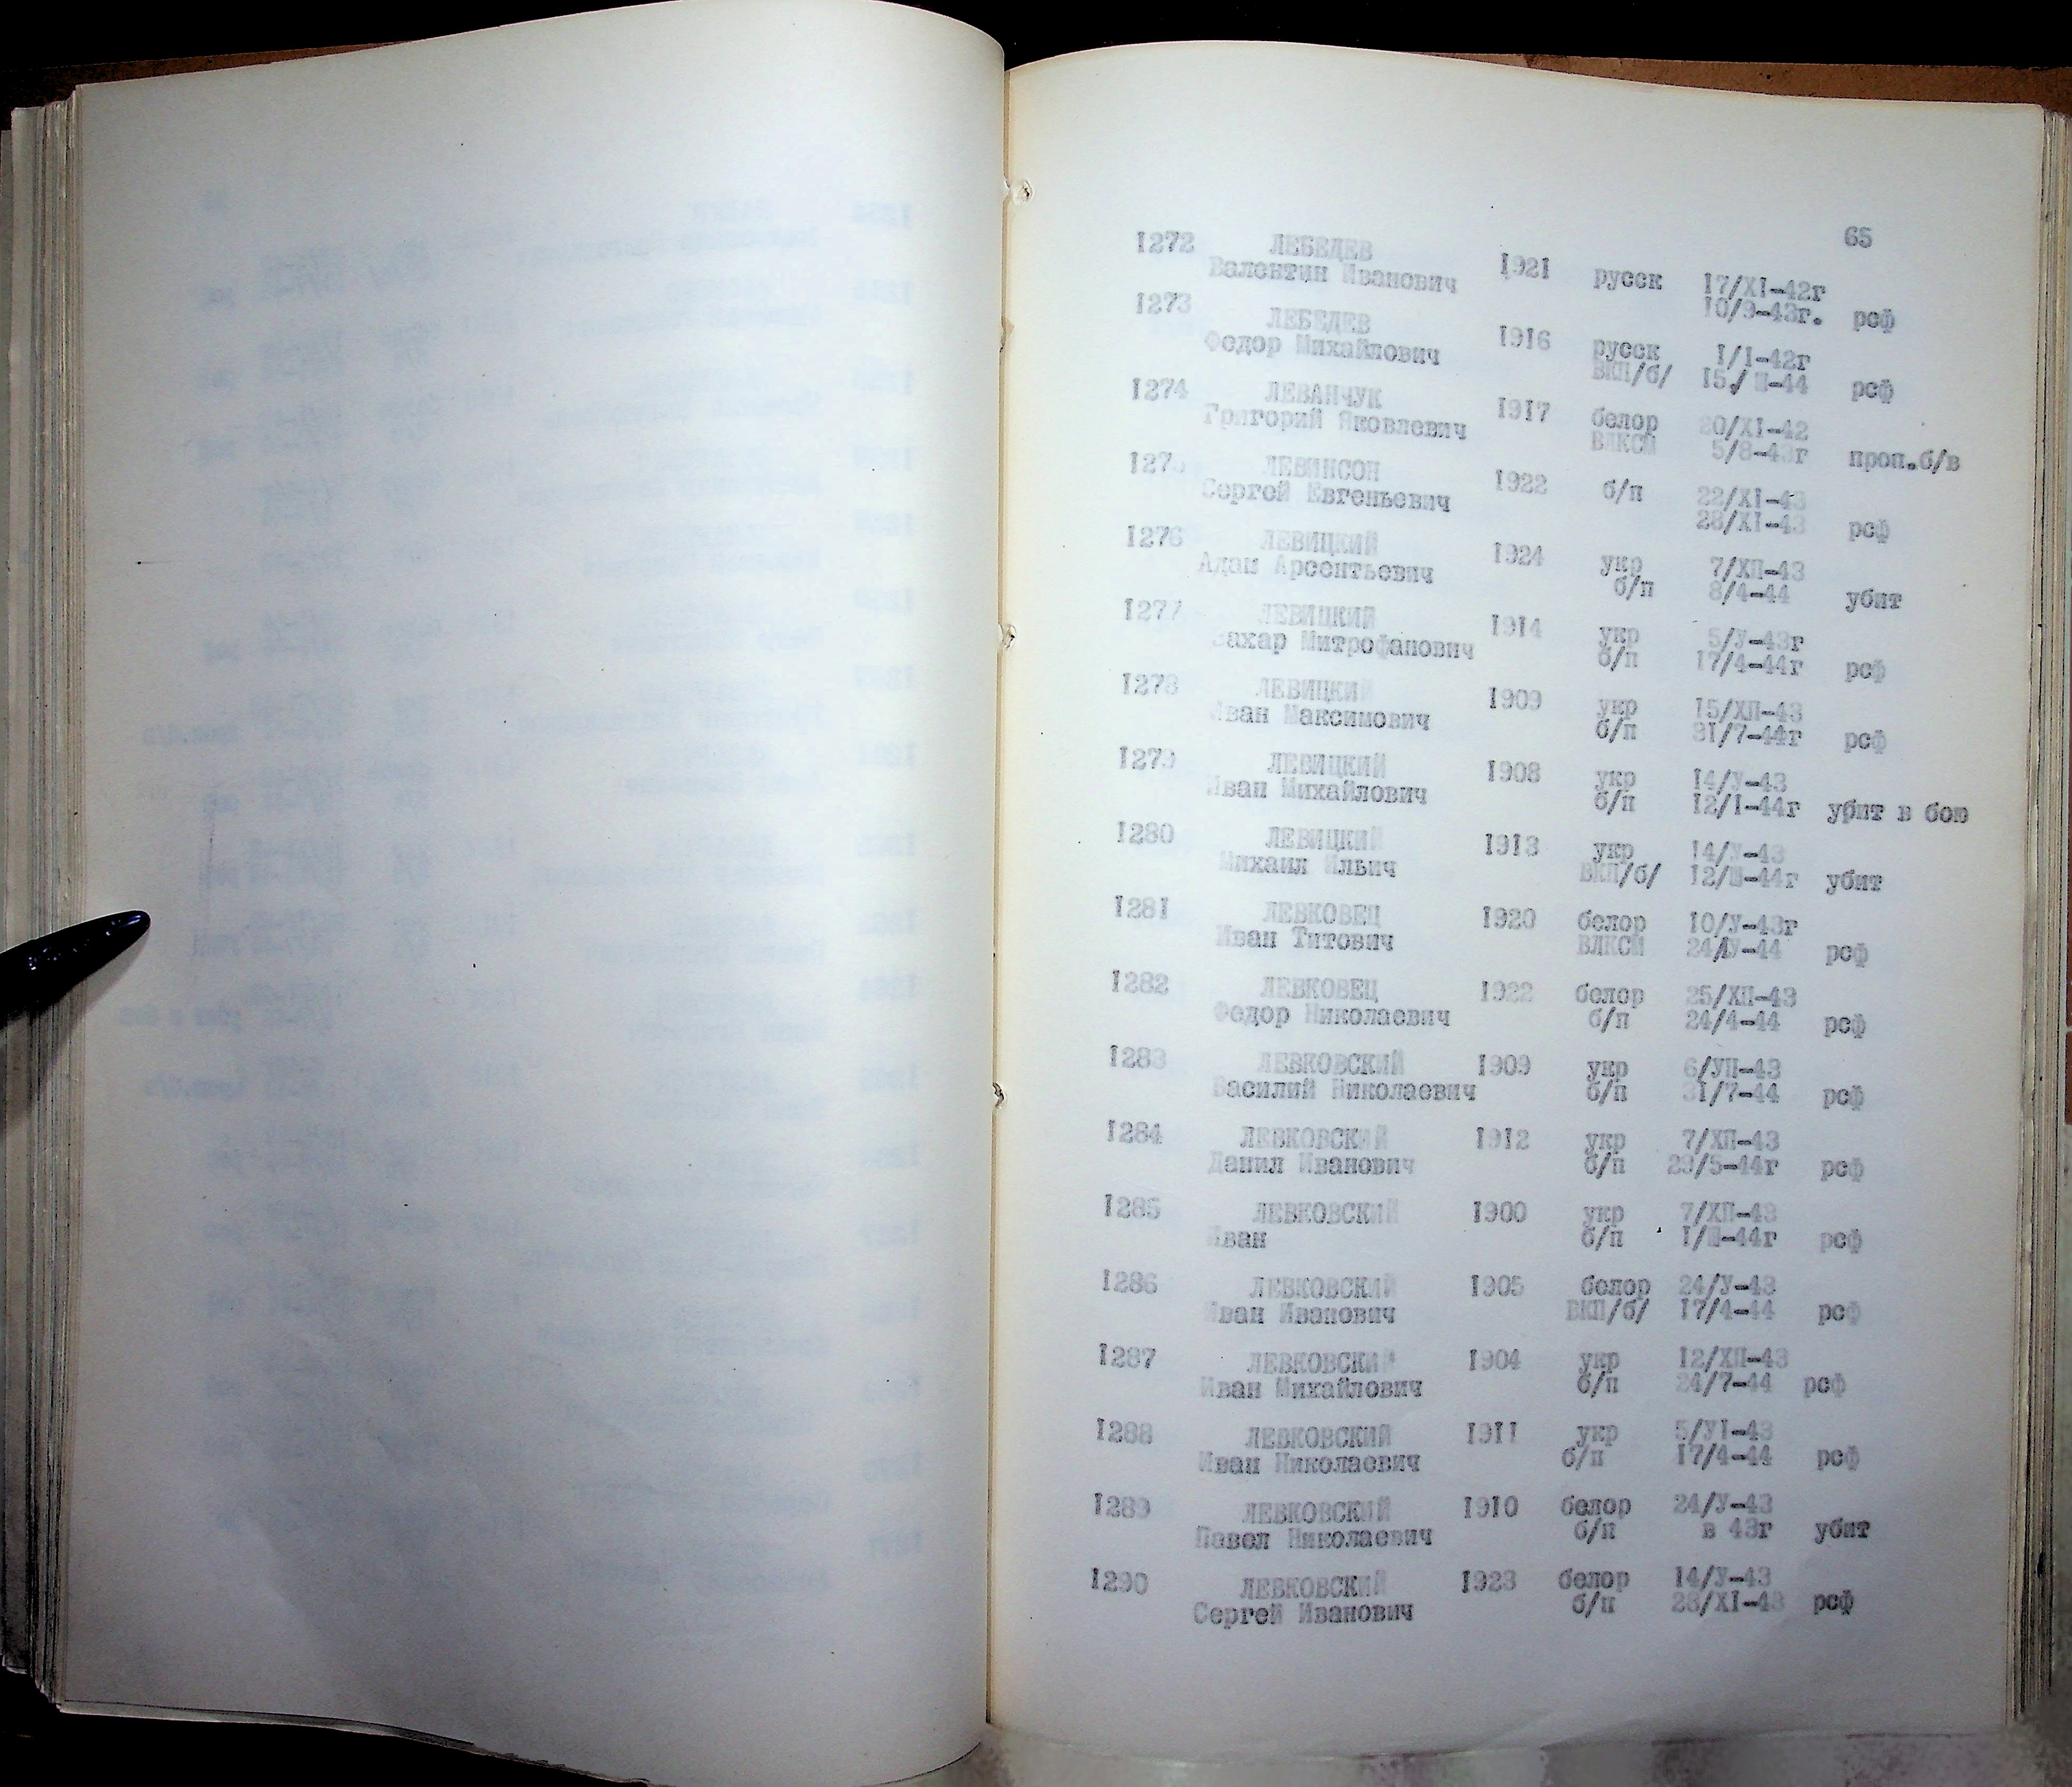 65
1272 ЛЕБЕДЕВ 1921 русск 17/XI-42г
Валентин Иванович 10/9-43г. рсф
1273 ЛЕБЕДЕВ 1916 русск 1/1-42г
Федор Михайлович ВКП/б/ 15/Ш-44 рсф
1274 ЛЕВАНЧУК 1917 белор 20/XI-42
Григорий Яковлевич ВЛКСМ 5/8-43г проп.б/в
1275 ЛЕВИНСОН 1922 б/п 22/XI-43
Сергей Евгеньевич 28/XI-43 рсф
1276 ЛЕВИЦКИЙ 1924 укр 7/ХП-43
Адам Арсентьевич б/п 8/4-44 убит
1277 ЛЕВИЦКИЙ 1914 укр 5/У-43г
Захар Митрофанович б/п 17/4-44г рсф
1278 ЛЕВИЦКИЙ 1909 укр 15/ХП-43
Иван Максимович б/п 31/7-44г рсф
1279 ЛЕВИЦКИЙ 1908 укр 14/У-43
Иван Михайлович б/п 12/1-44г убит в бою
1280 ЛЕВИЦКИЙ 1913 укр 14/У-43
Михаил Ильич ВКП/б/ 12/Ш-44г убит
1281 ЛЕВКОВЕЦ 1920 белор 10/У-43г
Иван Титович ВЛКСМ 24/1У-44 рсф
1282 ЛЕВКОВЕЦ 1922 белор 25/ХП-43
Федор Николаевич б/п 24/4-44 рсф
1283 ЛЕВКОВСКИЙ 1909 укр 6/УП-43
Василий Николаевич б/п 31/7-44 рсф
1284 ЛЕВКОВСКИЙ 1912 укр 7/ХП-43
Данил Иванович б/п 29/5-44г рсф
1285 ЛЕВКОВСКИЙ 1900 укр 7/ХП-43
Иван б/п 1/Ш-44г рсф
1286 ЛЕВКОВСКИЙ 1905 белор 24/У-43
Иван Иванович ВКП/б/ 17/4-44 рсф
1287 ЛЕВКОВСКИЙ 1904 укр 12/ХП-43
Иван Михайлович б/п 24/7-44 рсф
1288 ЛЕВКОВСКИЙ 1911 укр 5/У1-43
Иван Николаевич б/п 17/4-44 рсф
1289 ЛЕВКОВСКИЙ 1910 белор 24/У-43
Павел Николаевич б/п в 43г убит
1290 ЛЕВКОВСКИЙ 1923 белор 14/У-43
Сергей Иванович б/п 28/XI-43 рсф